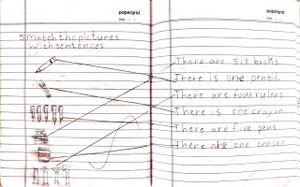 papergrid
papergrid
Match the pictures
with sentences
There are six books.
There is one pencil.
There are four rulers.
There is one crayon.
There are five pens
There are one eraser